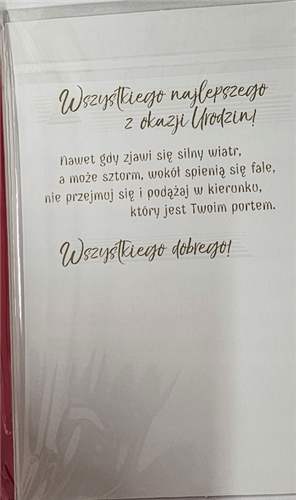 Wszystkiego najlepszego
z okazji Urodzin!
Nawet gdy zjawi się silny wiatr,
a może sztorm, wokół spienią się fale,
nie przejmuj się i podążaj w kierunku,
który jest Twoim portem.
Wszystkiego dobrego!